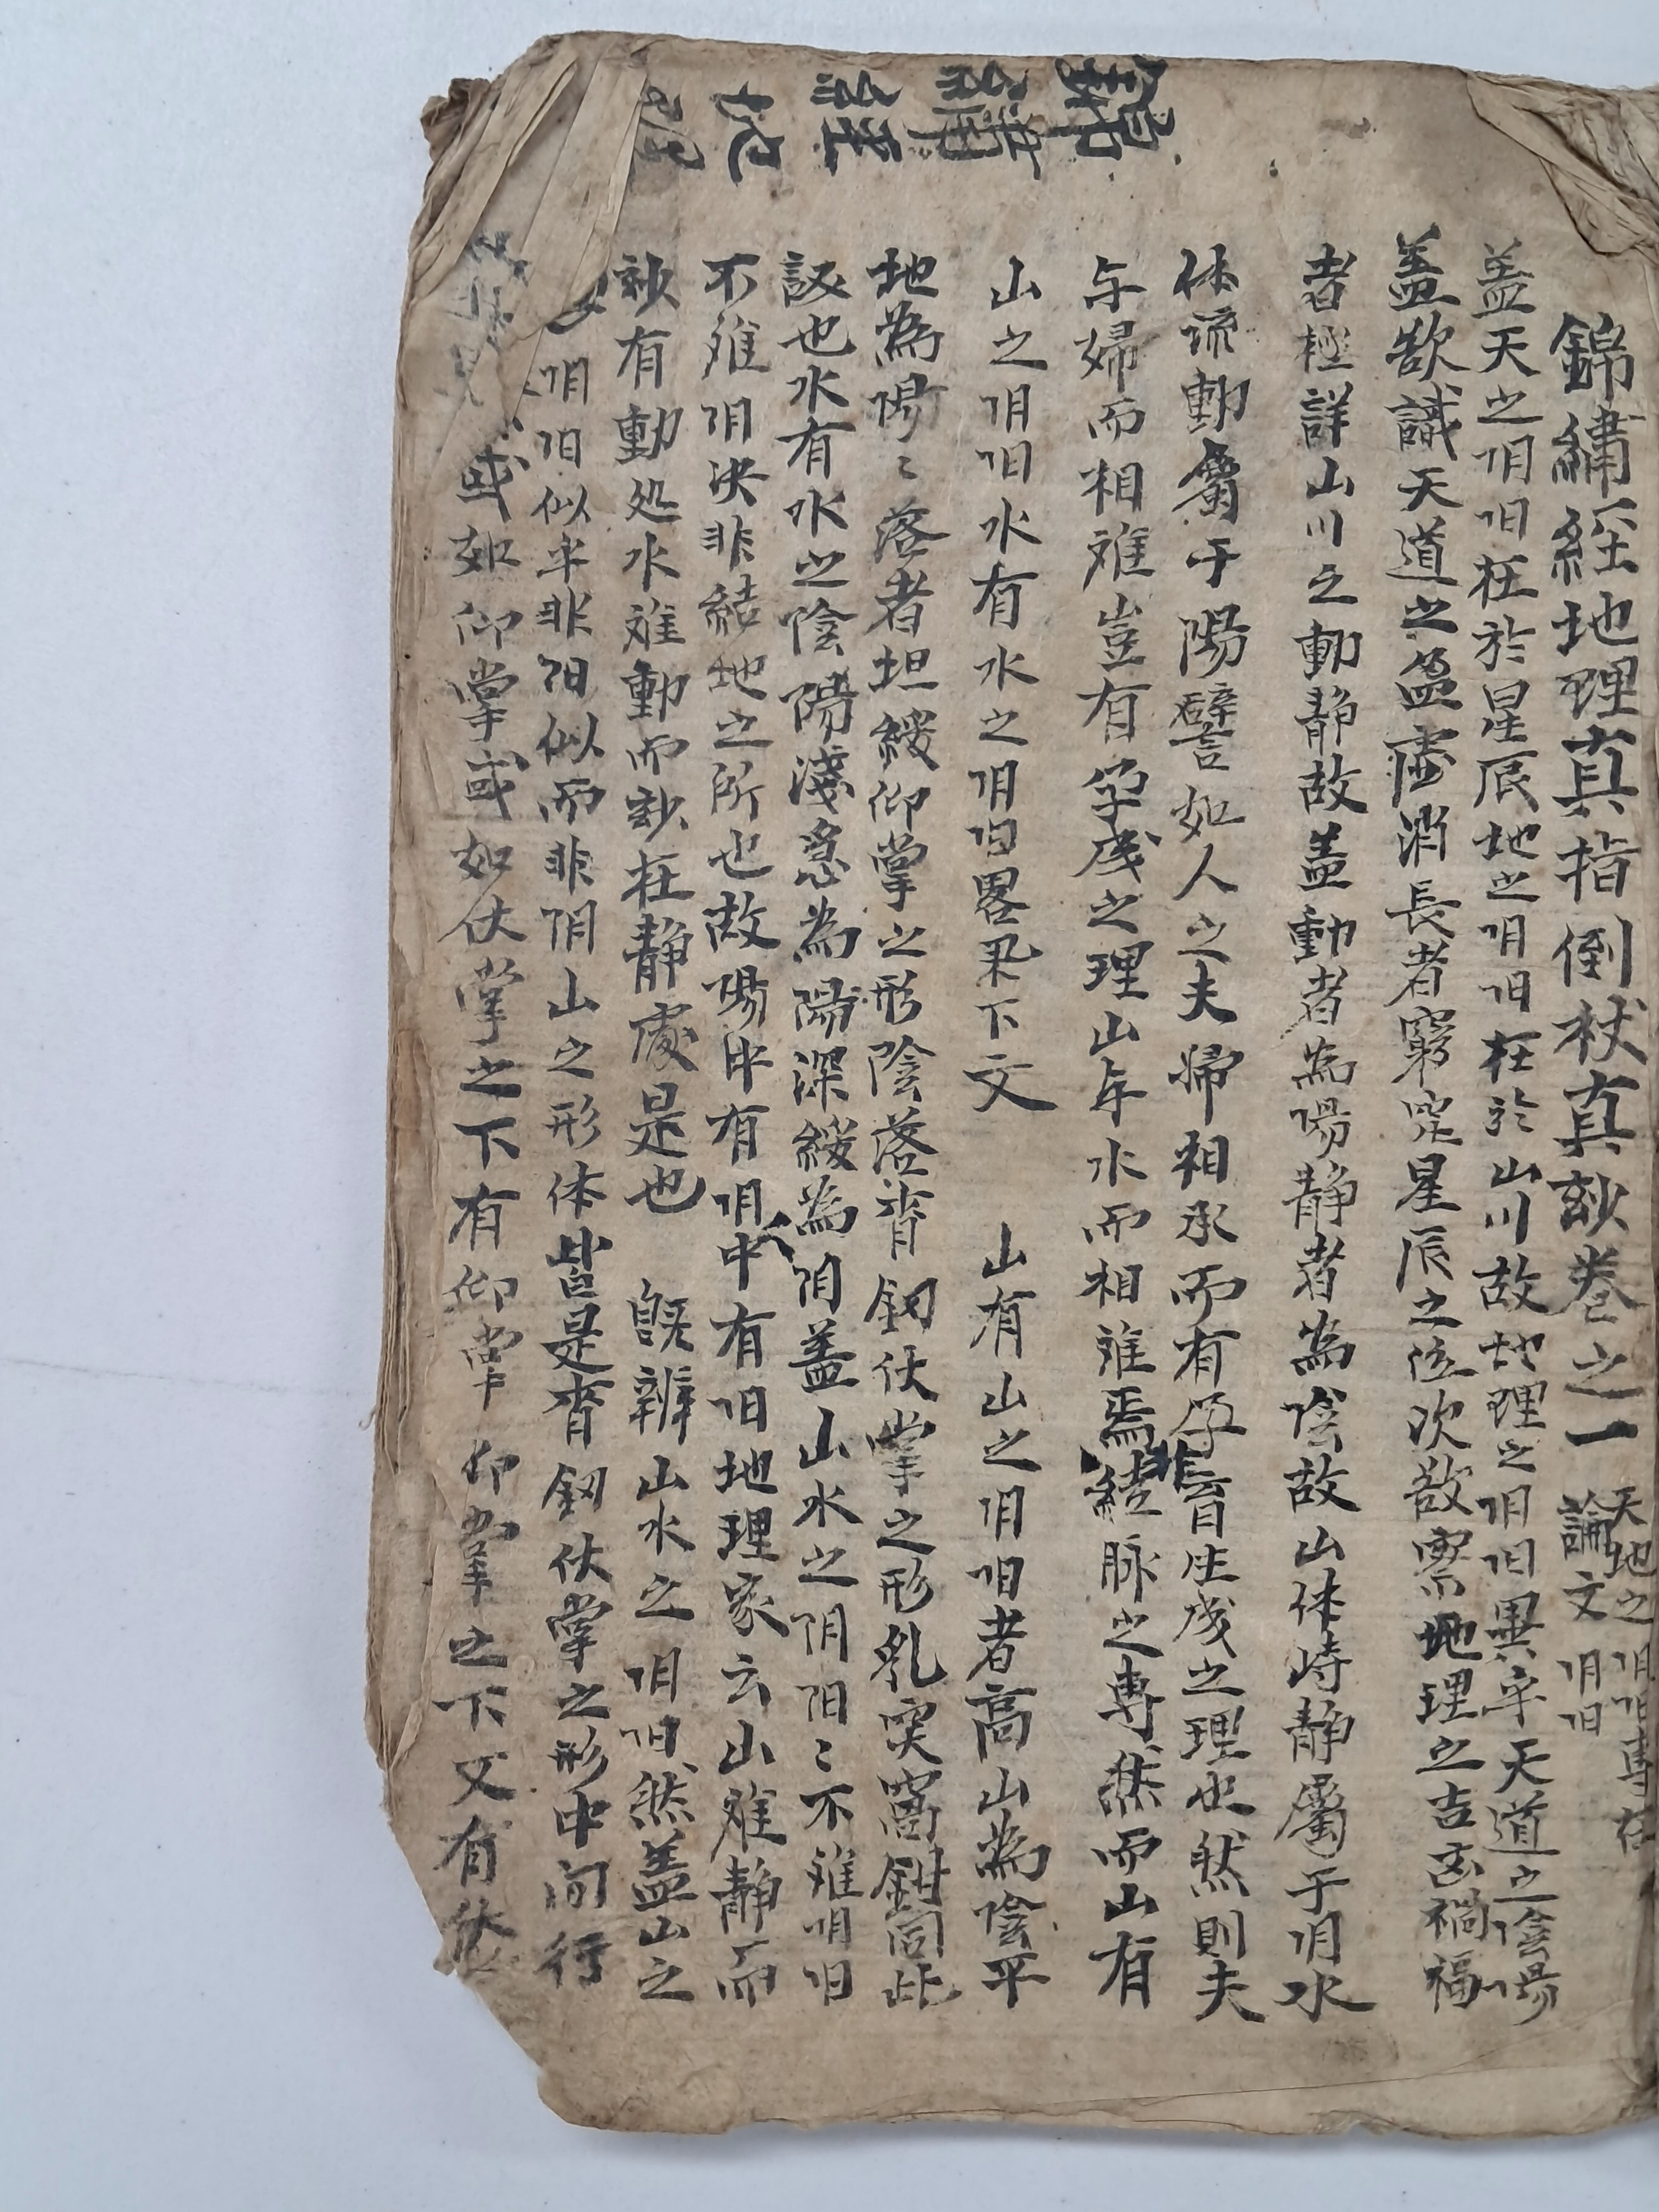 錦繡經地理真指倒杖真訣卷之一 論文 阴阳
天地之阴阳專在
盖天之阴阳在於星辰地之阴阳在於山川故地理之阴阳異乎天道之陰陽
盖欲識天道之盈虛消長者窮究星辰之位次欲察地理之吉凶禍福
者極詳山川之動静故盖動者為陽静者為陰故山体峙静屬于阴水
体流動屬于陽譬如人之夫婦相承而有孕育生成之理也然則夫
与婦而相雅豈有孕成之理山与水而相雅焉結脉之專然而山有
山之阴阳水有水之阴阳畧录下文　山有山之阴阳者高山為陰平
地為陽〻落者坦緩仰掌之形陰落脊釼伏掌之形乳突窩鉗同此
訣也水有水之陰陽淺急為陽深緩為阴盖山水之阴阳〻不雅阴阳
不雅阴决非結地之所也故陽中有阴〻中有阳地理家云山雖静而
玅有動処水雖動而玅在静處是也　既辨山水之阴阳然盖山之
阴阳似平非阳似而非阴山之形体皆是脊釼伏掌之形中间行
或如仰掌或如伏掌之下有仰掌仰掌之下又有